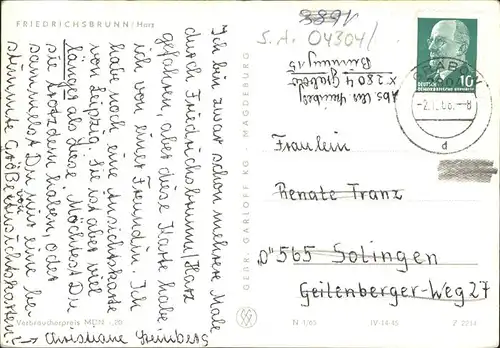 FRIEDRICHSBRUNN/Harz
Ich bin zwar schon mehrere Male
durch Friedrichsbrunn/Harz
gefahren, aber diese Karte habe
ich von einer Freundin. Ich
habe noch eine Ansichtskarte
von Leipzig. Sie ist aber viel
länger als diese. Möchtest Du
sie trotzdem haben, oder
sammelst Du nur eine be-
stimmte Größe von
Ansichtskarten?
→ Christiane Steinberg
Verbraucherpreis MDN -,20
GEBR. GARLOFF KG - MAGDEBURG
S. A. 04304/
Abs.
X 2804 Grabow
GRABOW
-2.1.66.-8
d
10
DEUTSCHE
DEMOKRATISCHE REPUBLIK
Fräulein
Renate Tranz
"D" 565 Solingen
Geilenberger-Weg 27
N 1/65
IV-14-45
Z 2014